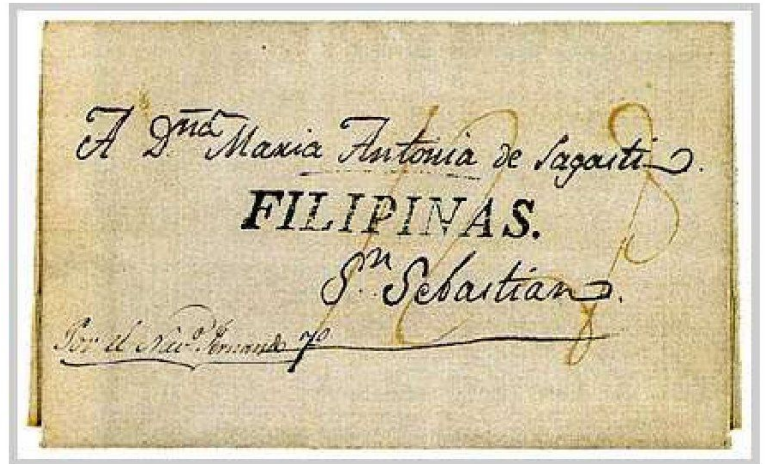 A Dña Maria Antonia de Sagasti
FILIPINAS.
Sn Sebastian.
Por el Navo. Fernando 7º